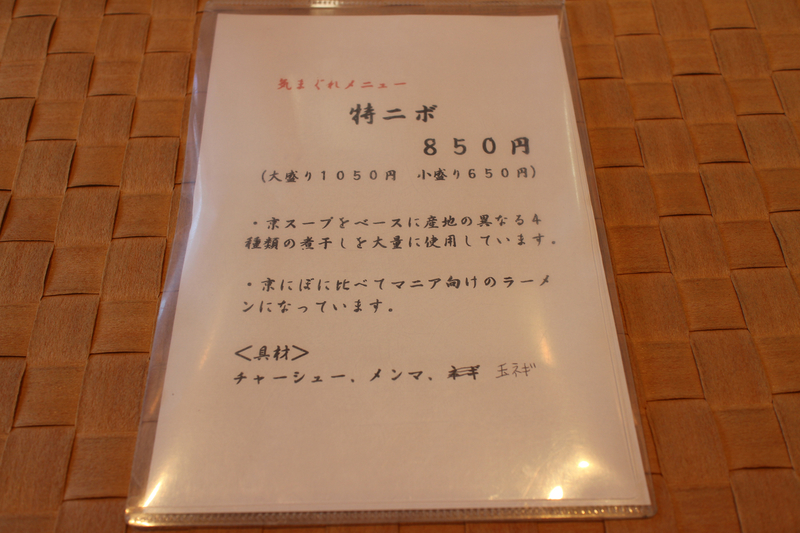 気まぐれメニュー
特ニボ
850円
(大盛り1050円 小盛り650円)
・京スープをベースに産地の異なる4
種類の煮干しを大量に使用しています。
・京にぼに比べてマニア向けのラーメ
ンになっています。
<具材>
チャーシュー、メンマ、ネギ 玉ネギ